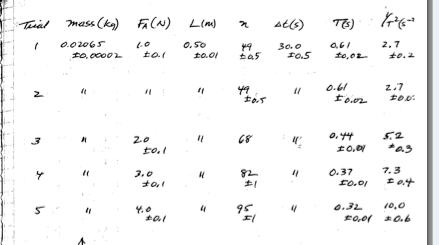 Trial mass (kg) FA (N) L(m) n Δt(s) T(s) 1/T² (s⁻²
1 0.02065 1.0 0.50 49 30.0 0.61 2.7
±0.00002 ±0.1 ±0.01 ±0.5 ±0.5 ±0.02 ±0.2
2 " " " 49 " 0.61 2.7
±0.5 ±0.02
3 " 2.0 " 68 " 0.44 5.2
±0.1 ±0.01 ±0.3
4 " 3.0 " 82 " 0.37 7.3
±0.1 ±1 ±0.01 ±0.4
5 " 4.0 " 95 " 0.32 10.0
±0.1 ±1 ±0.01 ±0.6